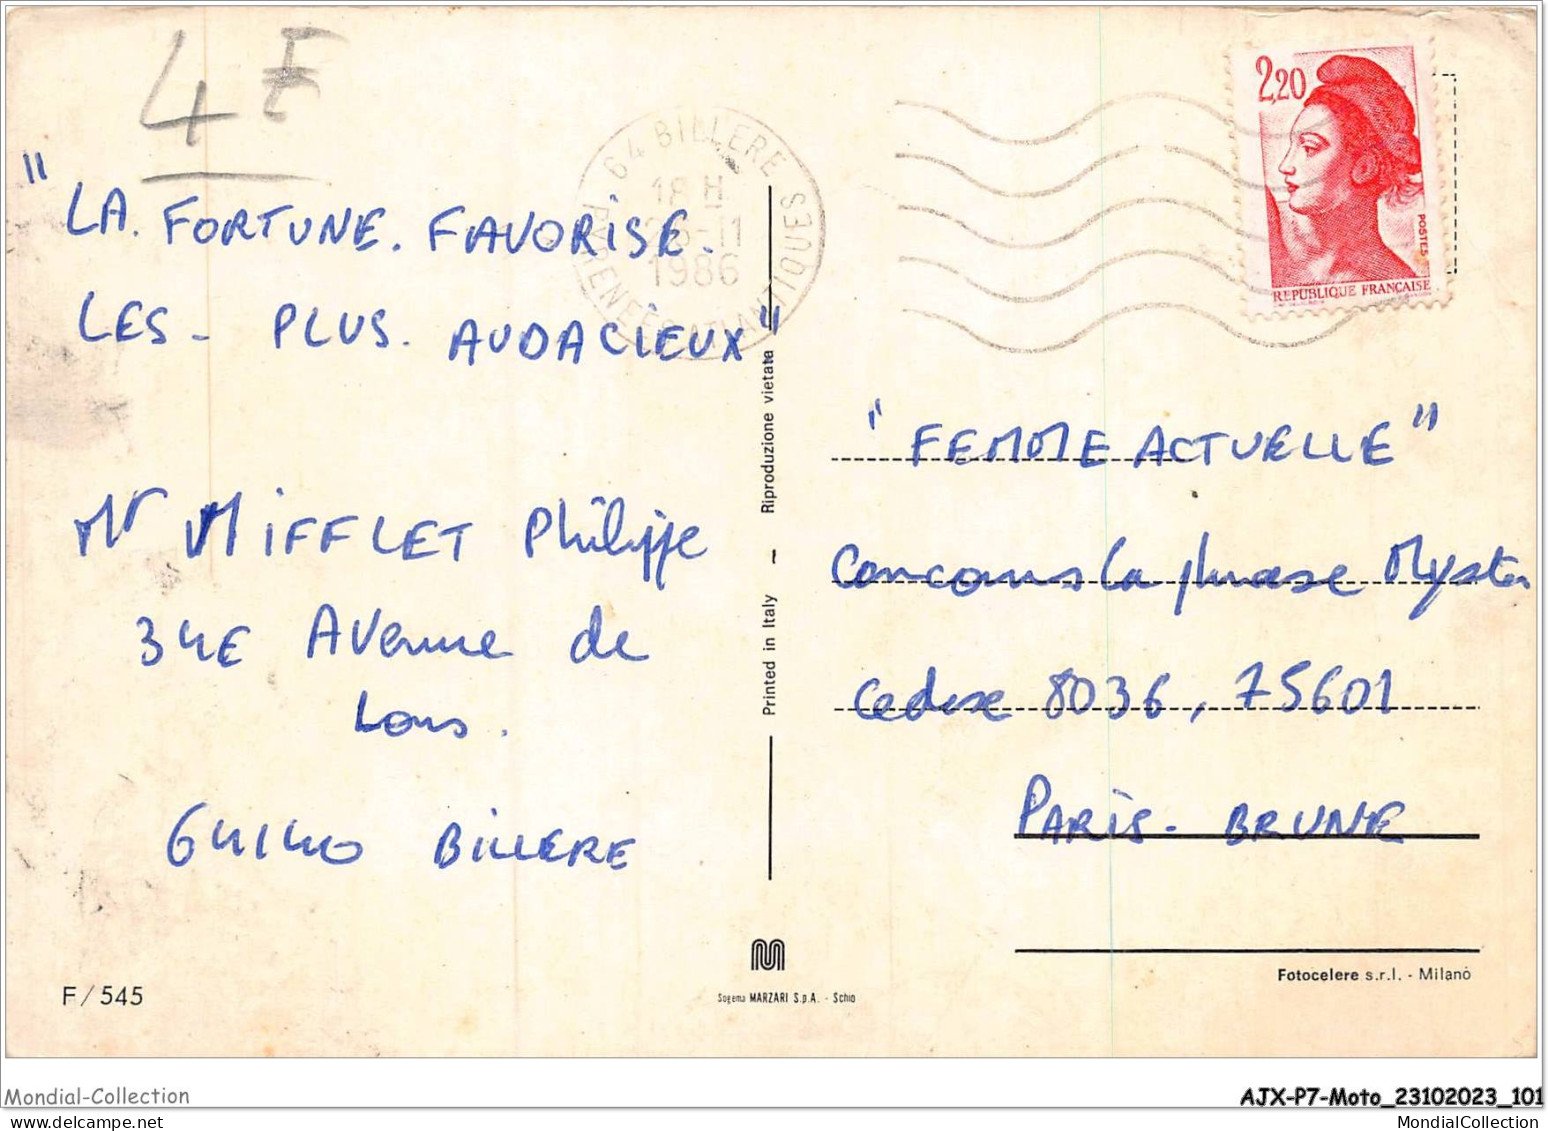 4 F
" LA. FORTUNE. FAVORISE.
LES - PLUS. AUDACIEUX"
Mr MIFFLET Philippe
34E Avenue de
Lons.
64140 BILLERE
F/545
64 BILLERE
18 H
-11
1986
PYRENEES ATLANTIQUES
Printed in Italy - Riproduzione vietata
Sogema MARZARI S.p.A. - Schio
2,20
POSTES
REPUBLIQUE FRANCAISE
"FEMME ACTUELLE"
Concours La phrase Myster
Cedex 8036, 75601
PARIS - BRUNE
Fotocelere s.r.l. - Milano
Mondial-Collection
AJX-P7-Moto_23102023_101
MondialCollection